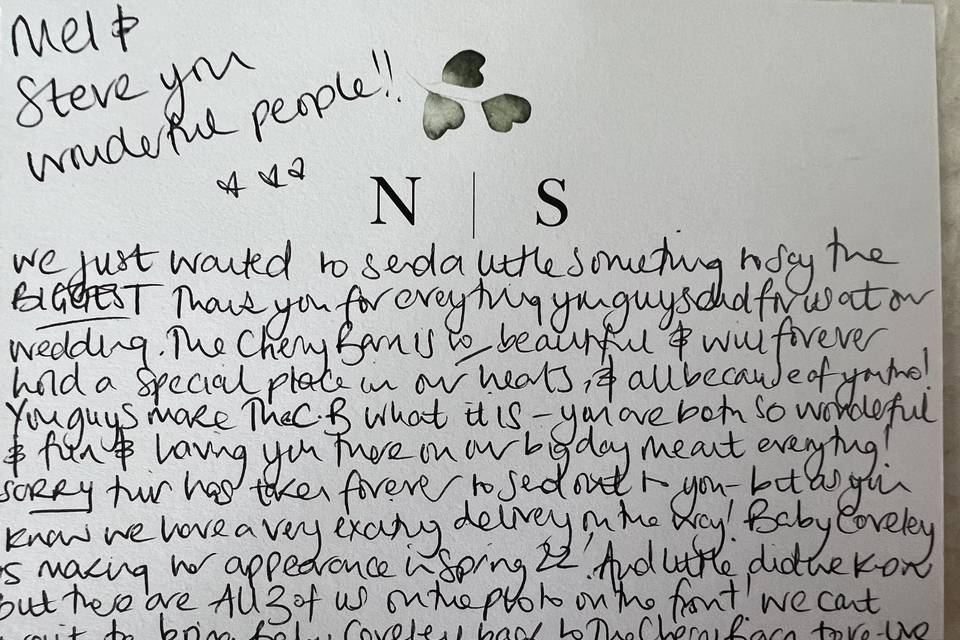 Mel &
Steve you
wonderful people!!
N | S
We just wanted to send a little something to say the
BIGGEST Thank you for everything you guys did for us at our
wedding. The Cherry Barn is so beautiful & will forever
hold a special place in our hearts, & all because of you two!
You guys make The C.B what it is - you are both so wonderful
& fun & having you there on our big day meant everything!
SORRY this has taken forever to send out to you - but as you
know we have a very exciting delivery on the way! Baby Coveley
is making her appearance in Spring 22! And little did we know
but there are ALL 3 of us on the photo on the front! We cant
wait to bring baby Coveley back to The Cherry Barn to re-live